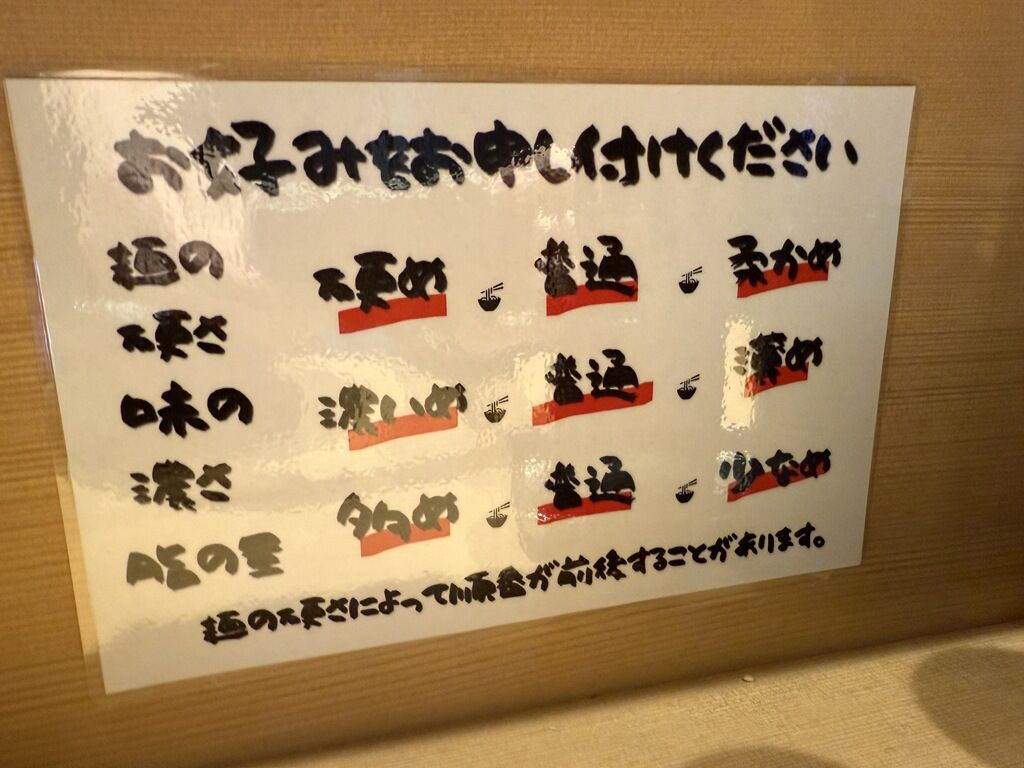 お好みをお申し付けください
麺の硬さ 硬め 普通 柔かめ
味の濃さ 濃いめ 普通 薄め
脂の量 多め 普通 少なめ
麺の硬さによって順番が前後することがあります。